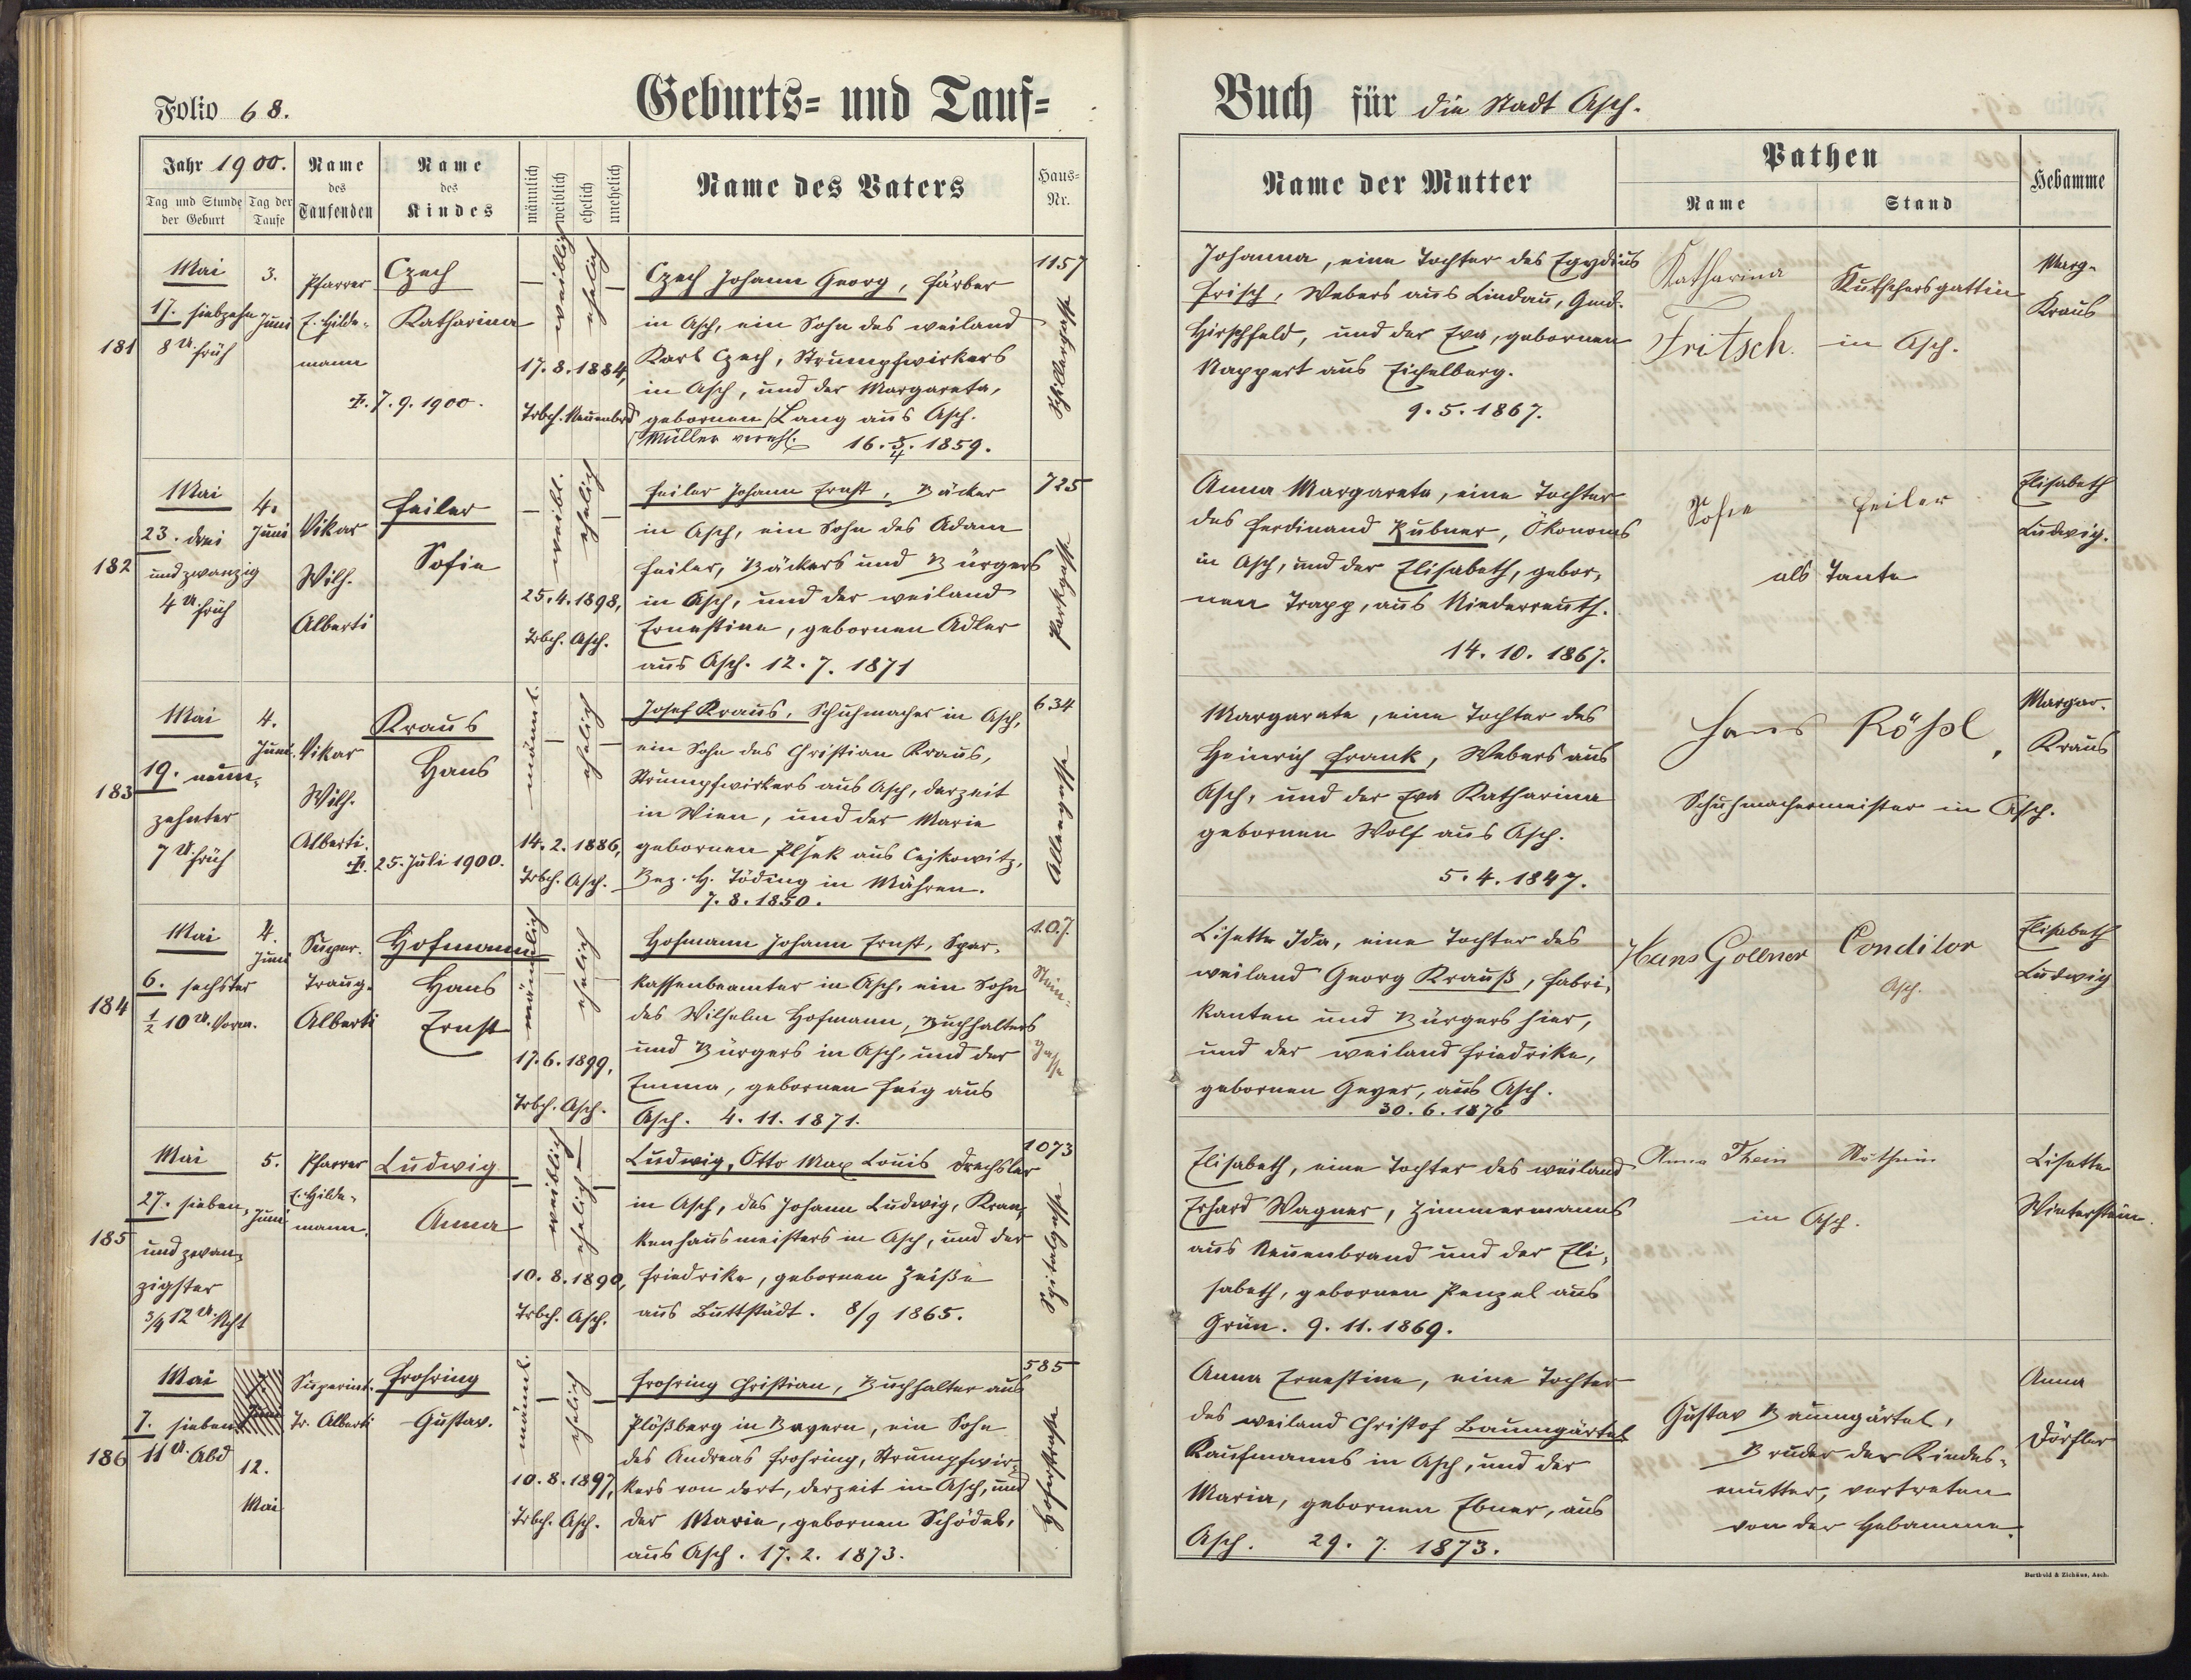 Folio 68.
Geburts- und Tauf-
Jahr 1900.
Tag und Stunde der Geburt
Tag der Taufe
Name des Taufenden
Name des Kindes
männlich
weiblich
ehelich
unehelich
Name des Vaters
Haus-Nr.
181
Mai
17. siebzehn
8 U. früh
3.
Juni
Pfarrer
E. Hilde-
mann
Czech
Katharina
†. 7. 9. 1900.
weiblich
ehelich
17. 8. 1884,
Trbch. Neuenbrd
Czech Johann Georg, Färber
in Asch, ein Sohn des weiland
Karl Czech, Strumpfwirkers
in Asch, und der Margareta,
gebornen Lang aus Asch.
Müller verehl. 16. 3/4. 1859.
1157
Schillergasse
182
Mai
23. drei
und zwanzig
4 U. früh
4.
Juni
Vikar
Wilh.
Alberti
Feiler
Sofie
weibl.
ehelich
25. 4. 1898,
Trbch. Asch.
Feiler Johann Ernst, Bäcker
in Asch, ein Sohn des Adam
Feiler, Bäckers und Bürgers
in Asch, und der weiland
Ernestine, gebornen Adler
aus Asch. 12. 7. 1871
725
Parkgasse
183
Mai
19. neun-
zehnter
7 U. früh
4.
Juni.
Vikar
Wilh.
Alberti.
Kraus
Hans
†. 25. Juli 1900.
männl.
ehelich
14. 2. 1886,
Trbch. Asch.
Josef Kraus, Schuhmacher in Asch,
ein Sohn des Christian Kraus,
Strumpfwirkers aus Asch, derzeit
in Wien, und der Marie
gebornen Plšek aus Cejkowitz,
Bez. H. Göding in Mähren.
7. 8. 1850.
634
Alleegasse
184
Mai
6. sechster
1/2 10 U. Vorm.
4.
Juni
Super.
Traug.
Alberti
Hofmann
Hans
Ernst
männlich
ehelich
17. 6. 1899,
Trbch. Asch.
Hofmann Johann Ernst, Spar-
kassenbeamter in Asch, ein Sohn
des Wilhelm Hofmann, Buchhalters
und Bürgers in Asch, und der
Emma, gebornen Feig aus
Asch. 4. 11. 1871.
107.
Stein-
gasse
185
Mai
27. sieben-
und zwan-
zigster
3/4 12 U. Ncht
5.
Juni
Pfarrer
E. Hilde-
mann.
Ludwig
Anna
weiblich
ehelich
10. 8. 1890,
Trbch. Asch.
Ludwig, Otto Max Louis Drechsler
in Asch, des Johann Ludwig, Kran-
kenhausmeisters in Asch, und der
Friedrike, gebornen Zeiße
aus Buttstädt. 8/9 1865.
1073
Spitalgasse
186
Mai
7. sieben
11 U. Abd
Juni
12.
Mai
Superint.
Tr. Alberti
Frohring
Gustav.
männl.
ehelich
10. 8. 1897,
Trbch. Asch.
Frohring Christian, Buchhalter aus
Plößberg in Bayern, ein Sohn
des Andreas Frohring, Strumpfwir-
kers von dort, derzeit in Asch, und
der Marie, gebornen Schödel,
aus Asch. 17. 2. 1873.
585
Hoferstrasse
Buch für die Stadt Asch.
Name der Mutter
Pathen
Name
Stand
Hebamme
Johanna, eine Tochter des Egydius
Frisch, Webers aus Lindau, Gmd.
Hirschfeld, und der Eva, gebornen
Nappert aus Eichelberg.
9. 5. 1867.
Katharina
Fritsch.
Kutschersgattin
in Asch.
Marg.
Kraus
Anna Margareta, eine Tochter
des Ferdinand Kubner, Ökonoms
in Asch, und der Elisabeth, gebor-
nen Trapp, aus Niederreuth.
14. 10. 1867.
Sofie Feiler
als Tante
Elisabeth
Ludwig.
Margarete, eine Tochter des
Heinrich Frank, Webers aus
Asch, und der Eva Katharina
gebornen Wolf aus Asch.
5. 4. 1847.
Hans Rößl,
Schuhmachermeister in Asch.
Margar.
Kraus
Lisette Ida, eine Tochter des
weiland Georg Krauß, Fabri-
kanten und Bürgers hier,
und der weiland Friedrike,
gebornen Geyer, aus Asch.
30. 6. 1876
Hans Gollner
Conditor
Asch.
Elisabeth
Ludwig
Elisabeth, eine Tochter des weiland
Erhard Wagner, Zimmermanns
aus Neuenbrand und der Eli-
sabeth, gebornen Penzel aus
Grün. 9. 11. 1869.
Anna Thein
Näherin
in Asch.
Lisette
Winterstein.
Anna Ernestine, eine Tochter
des weiland Christof Baumgärtel
Kaufmanns in Asch, und der
Maria, gebornen Ebner, aus
Asch. 29. 7. 1873.
Gustav Baumgärtel,
Bruder der Kindes-
mutter, vertreten
von der Hebamme.
Anna
Dörfler
Berthold & Zichäus, Asch.